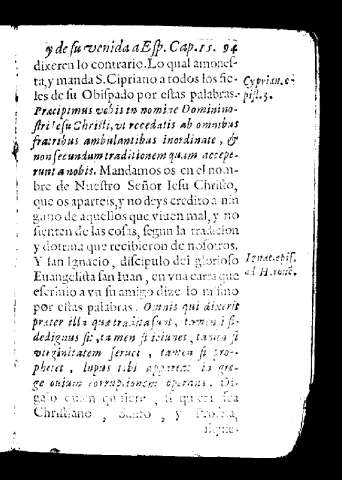 y de su venida a Esp. Cap. 15. 94
dixeren lo contrario. Lo qual amones-
ta, y manda S. Cipriano a todos los fie-
les de su Obispado por estas palabras.
Cyprian. epist. 5.
Præcipimus vobis in nomine Domini no-
stri Iesu Christi, vt recedatis ab omnibus
fratribus ambulantibus inordinate, &
non secundum traditionem quam accepe-
runt a nobis. Mandamos os en el nom-
bre de Nuestro Señor Iesu Christo,
que os aparteis, y no deys credito a nin
guno de aquellos que viuen mal, y no
sienten de las cosas, segun la tradicion
y dotrina que recibieron de nosotros.
Y san Ignacio, discipulo del glorioso
Ignat. epis. ad
Euangelista san Iuan, en vna carta que
escriuio a vn su amigo dize lo mismo
por estas palabras. Omnis qui dixerit
præter illa quæ tradita sunt, tamen si fi-
de dignus sit, tamen si ieiunet, tamen si
virginitatem seruet, tamen si pro-
phetet, lupus tibi appareat in gre-
ge ouium corruptionem operans. Di-
galo quien quisiere, si quer sea
Christiano, Santo, y Profeta,